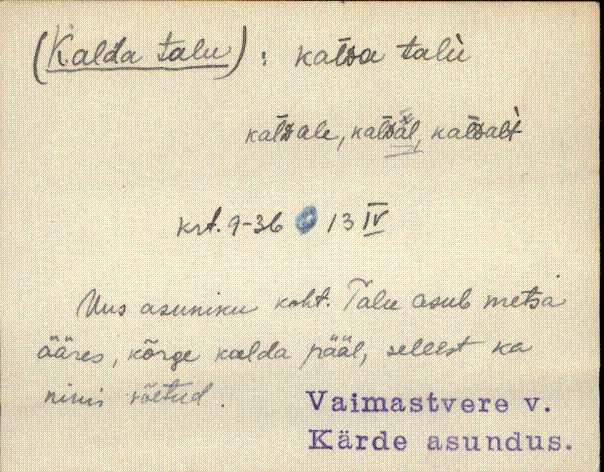 (Kalda talu): katsa talu
katsale, katsal, katsalt
krt. 9-36 13 IV
Uus asuniku koht. Talu asub metsa
ääres, kõrge kalda pääl, sellest ka
nimi võetud.
Vaimastvere v.
Kärde asundus.